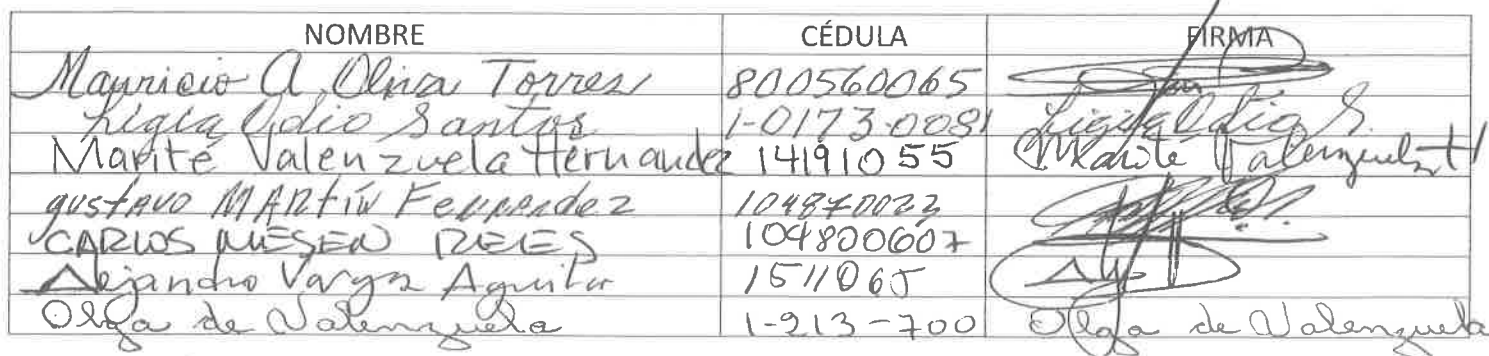 NOMBRE CÉDULA FIRMA
Mauricio A Oliva Torres 800560065
Ligia Odio Santos 1-0173-0081 Ligia Odio S.
Marité Valenzuela Hernandez 14191055 Marité Valenzuela H
gustavo MARtíN Fernandez 104870023
CARLOS MESEN REES 104800607
Alejandro Vargas Aguilar 1511065
Olga de Valenzuela 1-213-700 Olga de Valenzuela